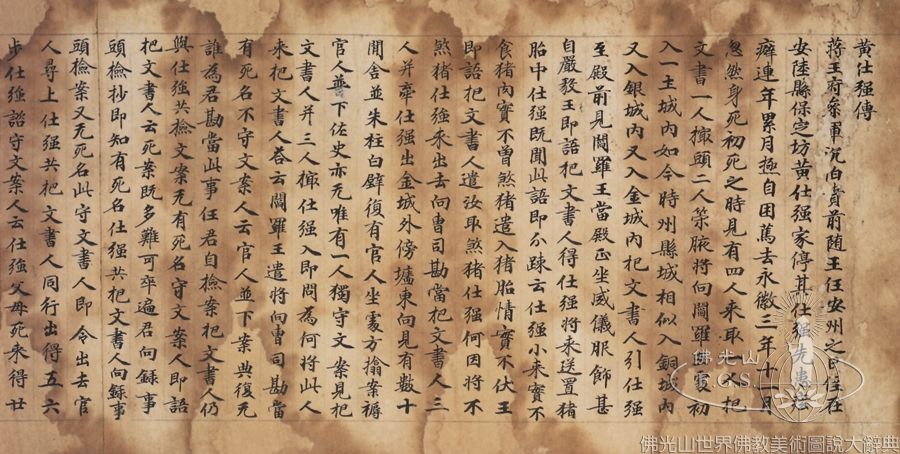 黄仕强傳
蔣王府叅軍沉伯貴前随王任安州之日住在
安陸縣保定坊黄仕强家停其仕强先患
癖連年累月極自困篤去永徽三年十一月
忽然身死初死之時見有四人来取一人把
文書一人擻頭二人策腋將向閻羅王處初
入一土城内如今時州縣城相似入銅城内
又入銀城内又入金城内把文書人引仕强
至殿前見閻羅王當殿正坐威儀服飾甚
自嚴秘王即語把文書人得仕强将来送置猪
胎中仕强既聞此語即分踈云仕强小来實不
食猪肉實不曾煞猪遣入猪胎情實不伏王
即語把文書人遣汝取煞猪仕强何因將不
煞猪仕强来出去向曺司勘當把文書人三
人并牽仕强出金城外傍墟東向見有數十
間舎並朱柱白壁復有官人坐處方搨案褥
官人並下佐史亦无唯有一人獨守文案見把
文書人并三人擻仕强入即問為何將此人
来把文書人荅云閻羅王遣將向曺司勘當
有死名不守文案人云官人並下案典復无
誰為君勘當此事任君自檢案把文書人仍
與仕强共檢文案无有死名守文案人即語
把文書人云死案既多難可卒遍君向録事
頭檢抄即知有死名仕强共把文書人向録事
頭檢案又无死名此守文書人即令出去官
人尋上仕强共把文書人同行出得五六
步仕强諮守文案人云仕强父母死来得廿
佛光山
F.G.S.
佛光山世界佛教美術圖說大辭典